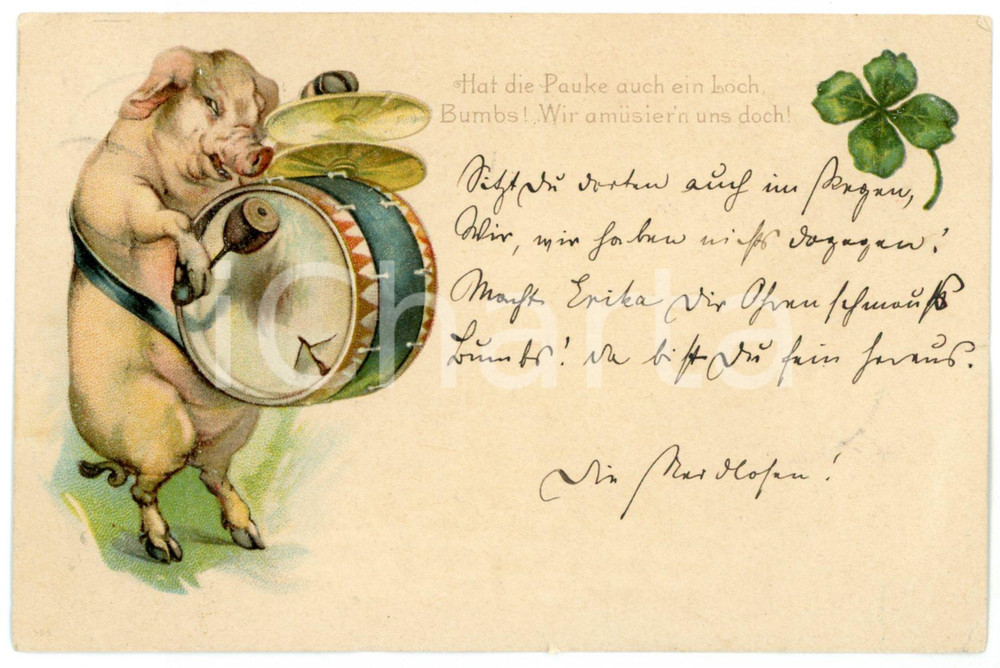 Hat die Pauke auch ein Loch,
Bumbs! Wir amüsier'n uns doch!
Sitzt Du dorten auch im Regen,
Wir, wir haben nichts dagegen!
Macht Erika Dir Ohrenschmauß
Bumbs! da bist Du fein heraus.
Die Neidlosen!
iCharta